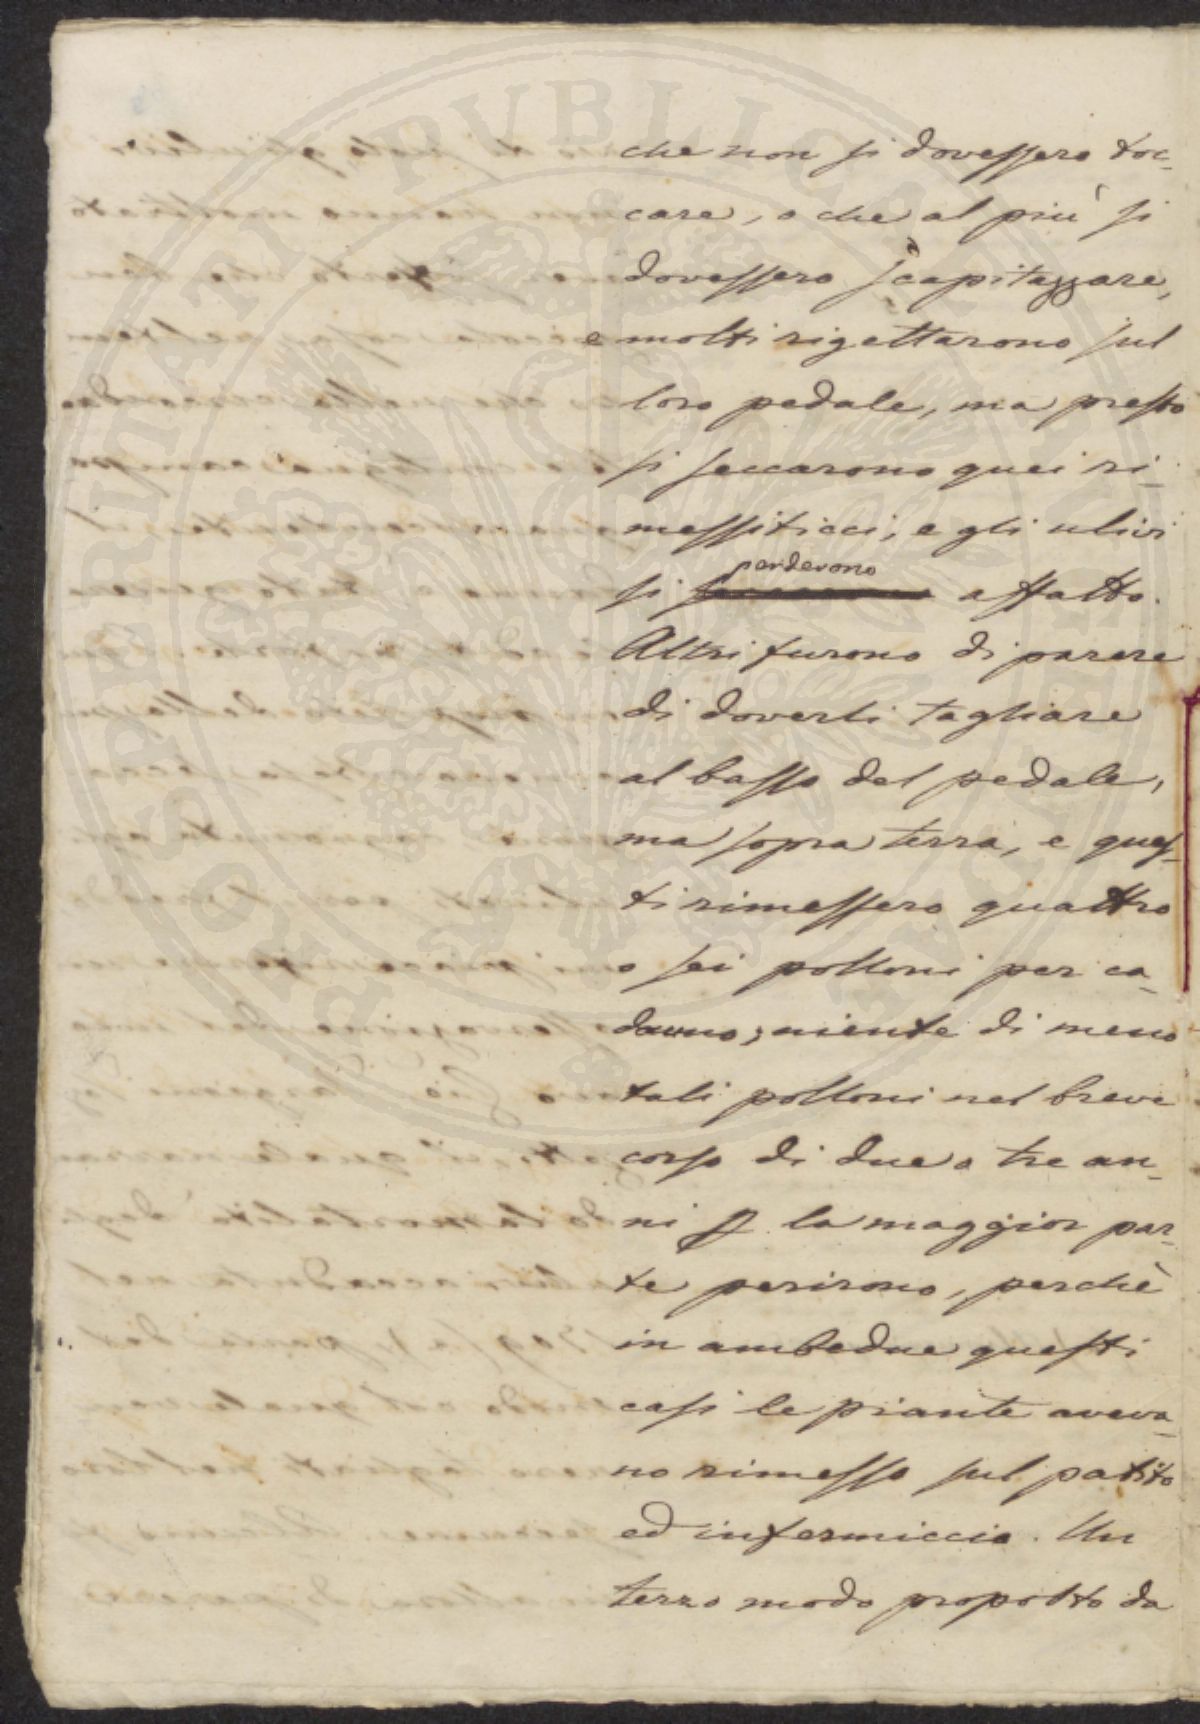 PROSPERITATI PUBLICAE AUGENDAE
che non si dovessero toc-
care, o che al più si
dovessero scapitazzare,
e molti rigettarono sul
loro pedale, ma presto
si seccarono quei ri-
messiticci, e gli ulivi
perderono
si affatto.
Altri furono di parere
di doverli tagliare
al basso del pedale,
ma sopra terra, e ques-
ti rimessero quattro
o sei polloni per ca-
dauno; niente di meno
tali polloni nel breve
corso di due o tre an-
ni p la maggior par-
te perirono, perchè
in ambedue questi
casi le piante aveva-
no rimesso sul patito
ed infermiccio. Un
terzo modo proposto da